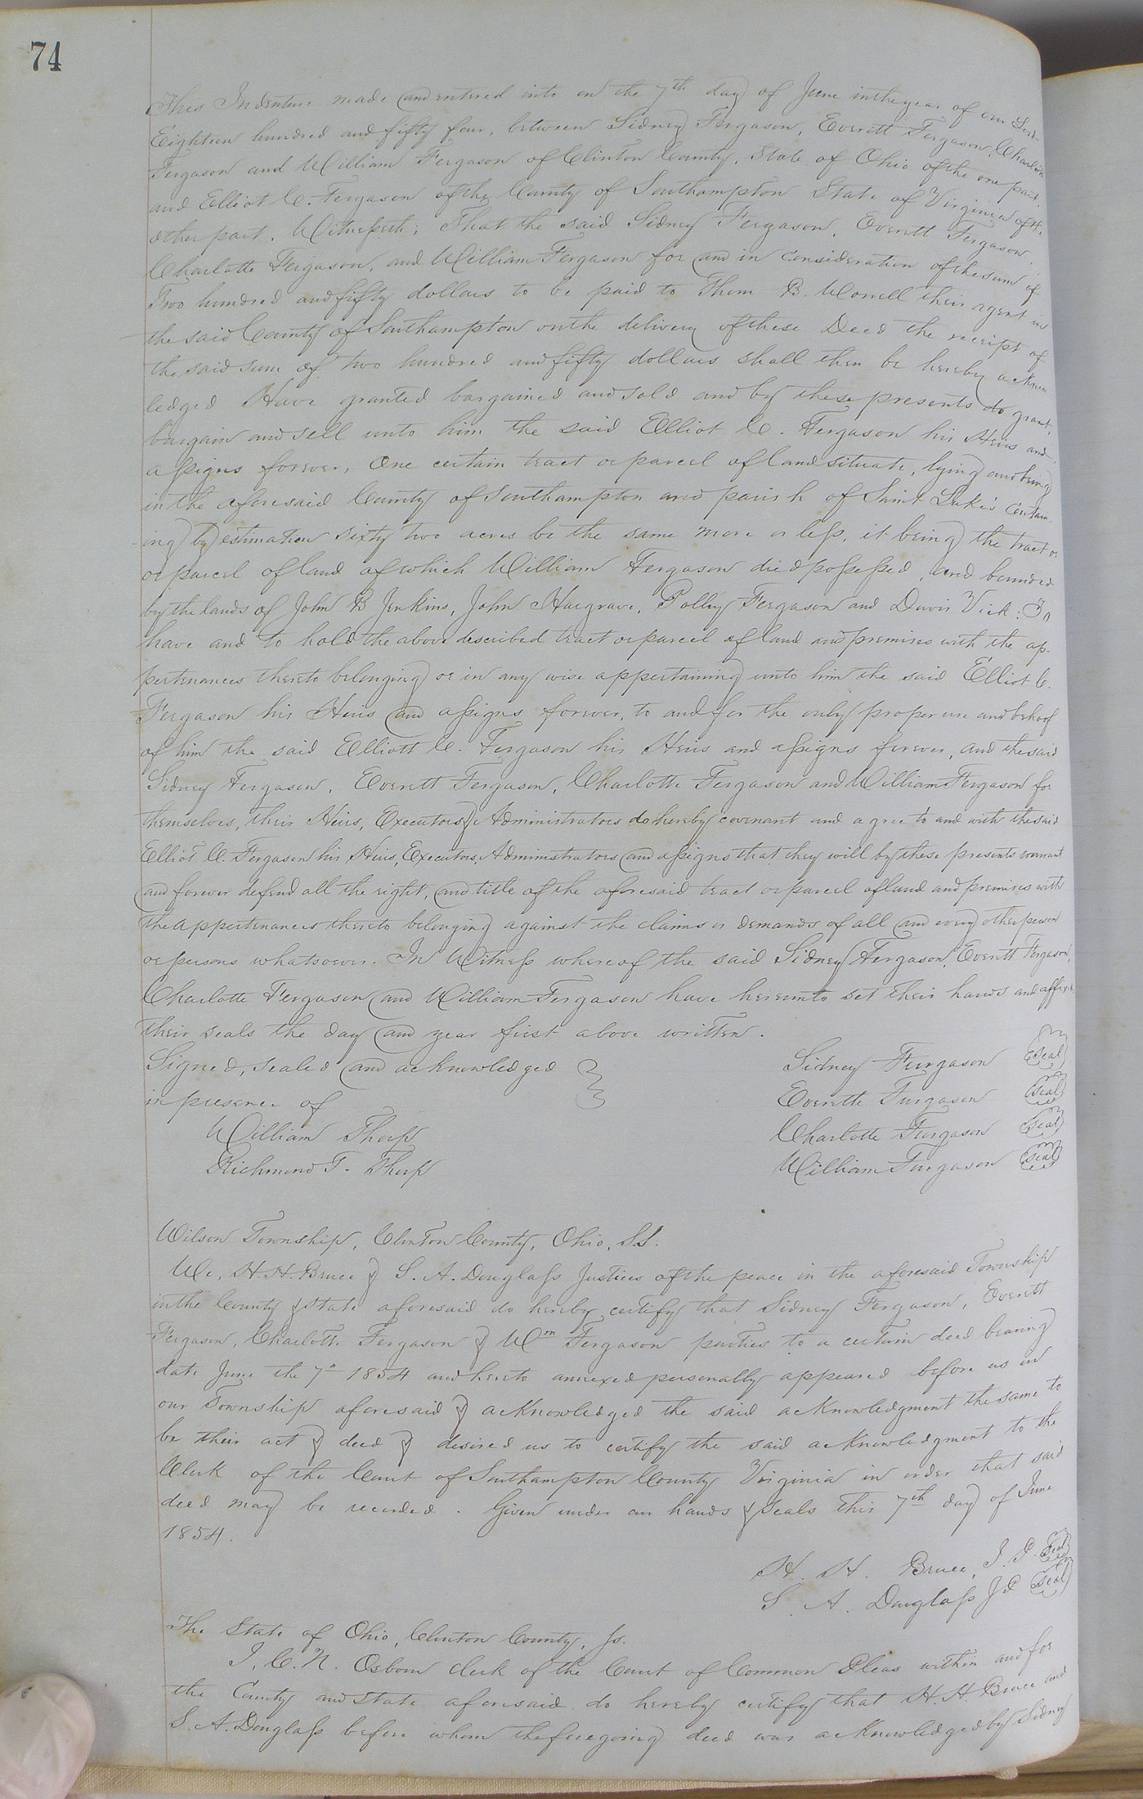 74
This Indenture made and entered into on the 7th day of June in the year of our Lord
Eighteen hundred and fifty four, between Sidney Fergason, Everett Fergason, Charlotte
Fergason and William Fergason of Clinton County, State of Ohio of the one part,
and Elliot C. Fergason of the County of Southampton State of Virginia of the
other part. Witnesseth; That the said Sidney Fergason, Everett Fergason,
Charlotte Fergason, and William Fergason for and in consideration of the sum of
Two hundred and fifty dollars to be paid to them B. Worrell their agent in
the said County of Southampton on the delivery of these Deed the receipt of
the said sum of two hundred and fifty dollars shall then be hereby acknow
ledged Have granted bargained and sold and by these presents do grant,
bargain and sell unto him the said Elliot C. Fergason his Heirs and
assigns forever, One certain tract or parcel of land situate, lying and being
in the aforesaid County of Southampton and parish of Saint Luke's contain
ing by estimation sixty two acres be the same more or less, it being the tract or
or parcel of land of which William Fergason died possessed, and bounded
by the lands of John B Jenkins, John Hargrave, Polly Fergason and Davis Vick: To
have and to hold the above described tract or parcel of land and premises with the ap-
pertenances thereto belonging or in any wise appertaining unto him the said Elliot C.
Fergason his Heirs and assigns forever, to and for the only proper use and behoof
of him the said Elliott C. Fergason his Heirs and assigns forever, and the said
Sidney Fergason, Everett Fergason, Charlotte Fergason and William Fergason for
themselves, their Heirs, Executors & Administrators do hereby covenant and agree to and with the said
Elliot C. Fergason his Heirs, Executors, Administrators and assigns that they will by these presents warrant
and forever defend all the right, and title of the aforesaid tract or parcel of land and premises with
the appertenances thereto belonging against the claims or demands of all and every other person
or persons whatsoever. In Witness whereof the said Sidney Fergason, Everett Fergason,
Charlotte Fergason and William Fergason have hereunto set their hands and affixed
their seals the day and year first above written.
Signed, sealed and acknowledged Sidney Furgason Seal
in presence of Everette Furgason Seal
William Thorp Charlotte Furgason Seal
Richmond T. Thorp William Furgason Seal
Wilson Township, Clinton County, Ohio, S.S.
We, H. H. Bruce & S. A. Douglass Justices of the peace in the aforesaid Township
in the County & state aforesaid do hereby certify that Sidney Fergason, Everett
Fergason, Charlotte Fergason & Wm Fergason parties to a certain deed bearing
date June the 7th 1854 and hereto annexed personally appeared before us in
our Township aforesaid & acknowledged the said acknowledgment the same to
be their act & deed & desired us to certify the said acknowledgment to the
Clerk of the Court of Southampton County Virginia in order that said
deed may be recorded. Given under our hands & seals this 7th day of June
1854.
H. H. Bruce, J. P. Seal
S. A. Douglass J P Seal
The State of Ohio, Clinton County, Ss.
I, C. N. Osborn clerk of the Court of Common Pleas within and for
the County and state aforesaid do hereby certify that H. H. Bruce and
S. A. Douglass before whom the foregoing deed was acknowledged by Sidney